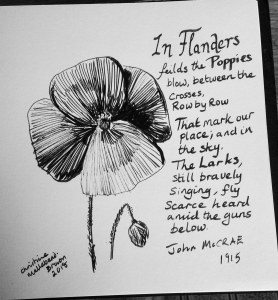 In Flanders
feilds the Poppies
blow, between the
Crosses,
Row by Row
That mark our
place; and in
the sky.
The Larks,
still bravely
singing, fly
Scarce heard
amid the guns
below.
John McCRAE
1915
christine
Brown
2015